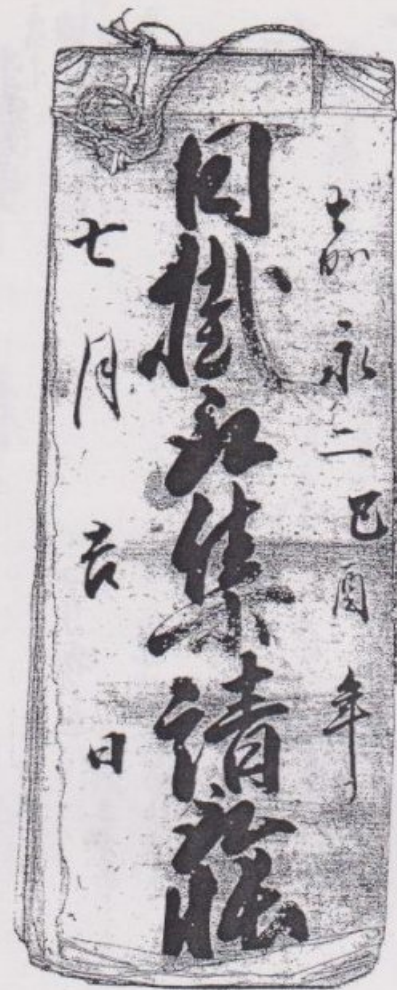 嘉永二己酉年
日掛取集請取帳
七月吉日